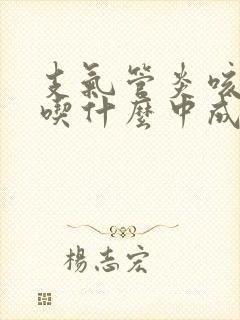 支氣管炎咳
喫什麼中成
楊志宏